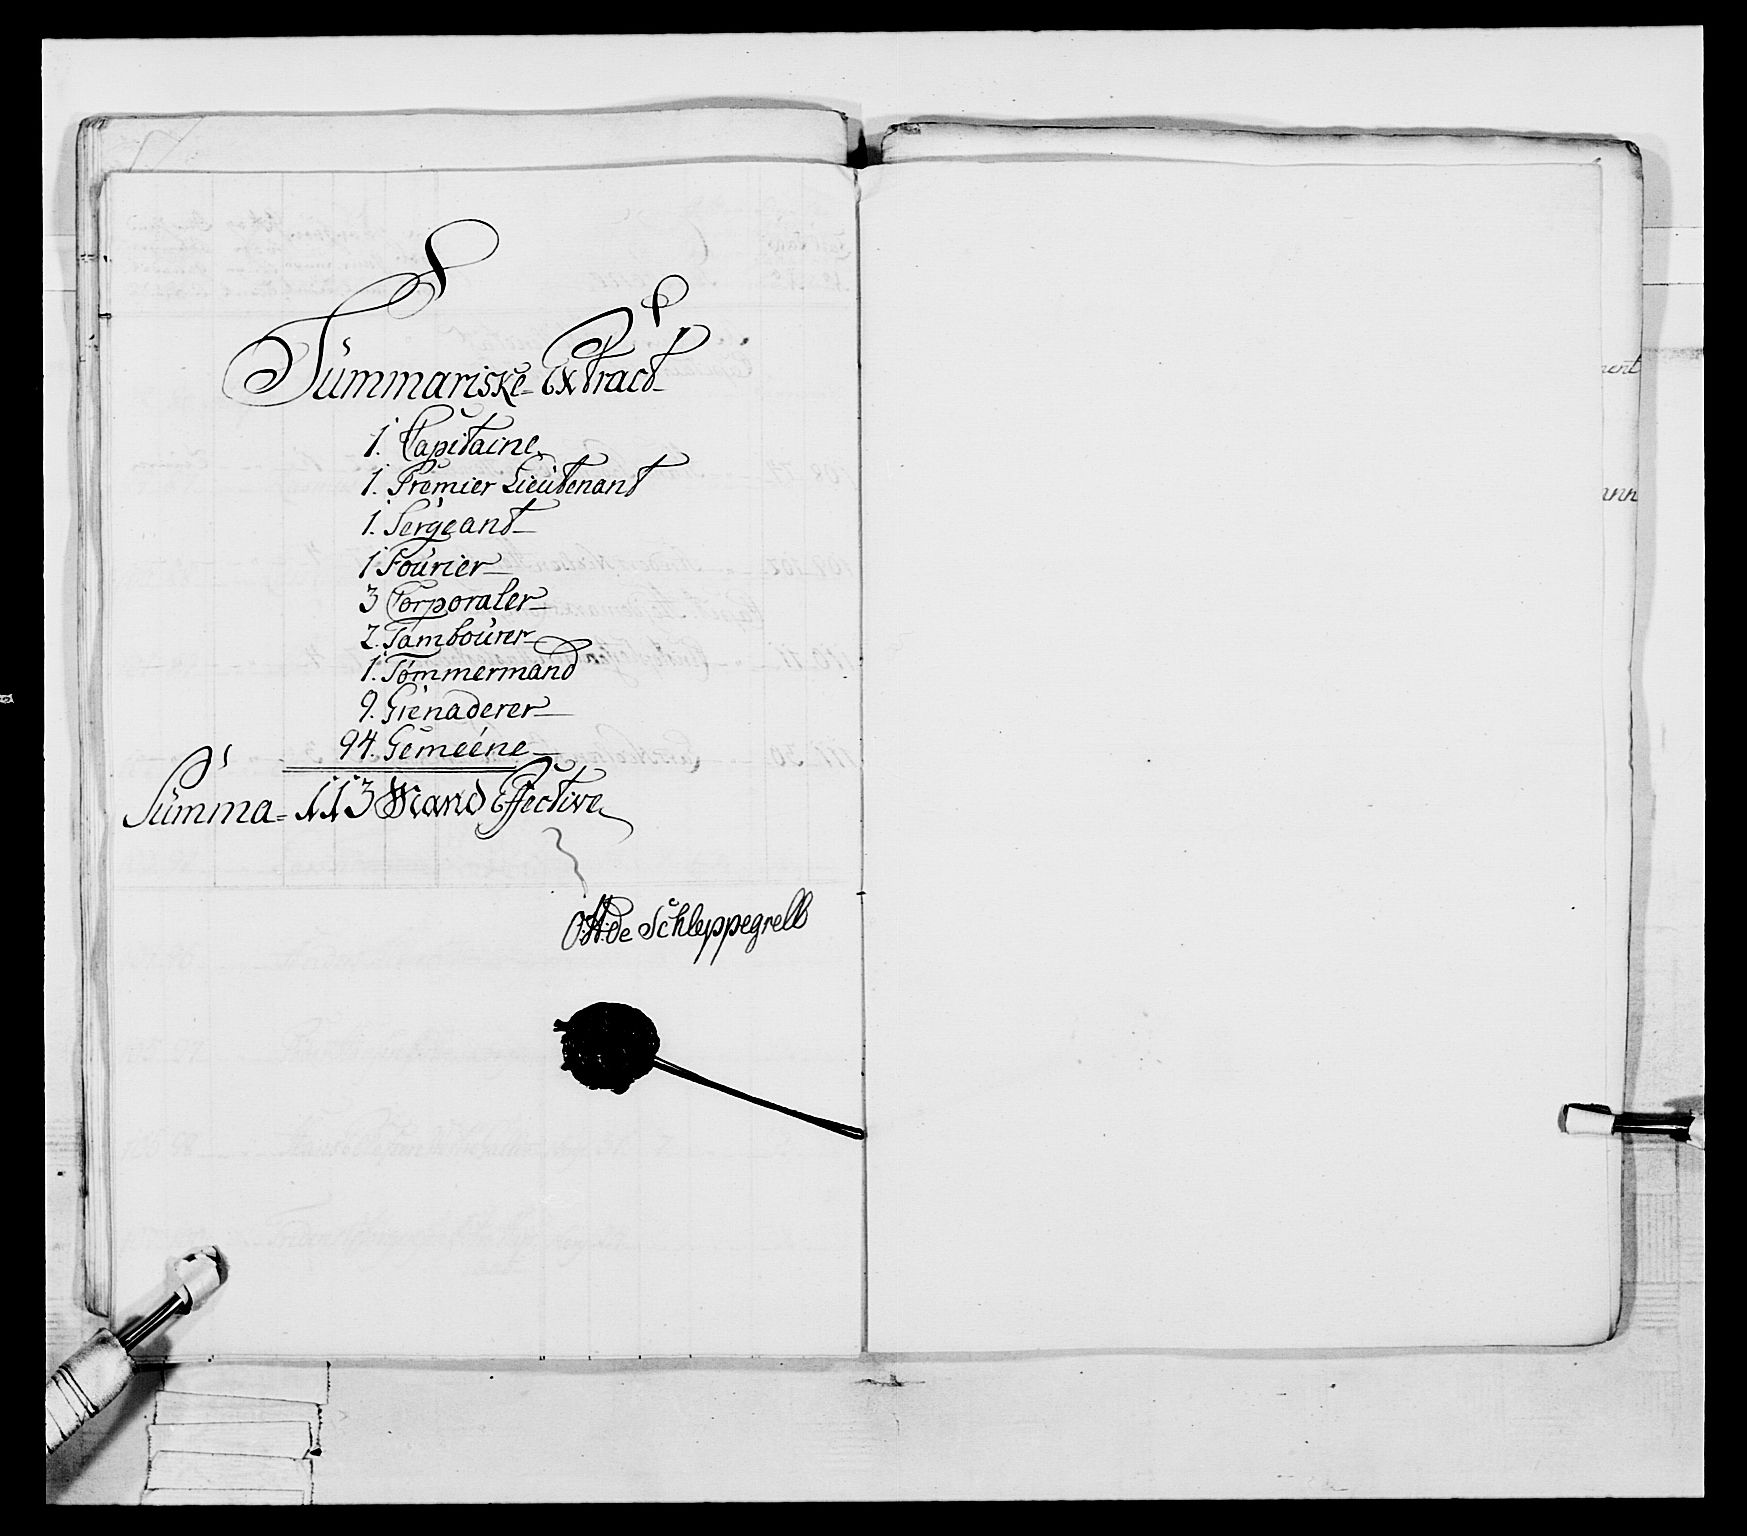 Summariske Extract
1. Capitaine
1. Premier Lieutenant
1. Sergeant
1 Fourier
3 Corporaler
2. Tambourer
1. Tømmermand
9. Grenaderer
94. Gemeene
Summa = 113 Mand Effective
O:H:de Schleppegrell